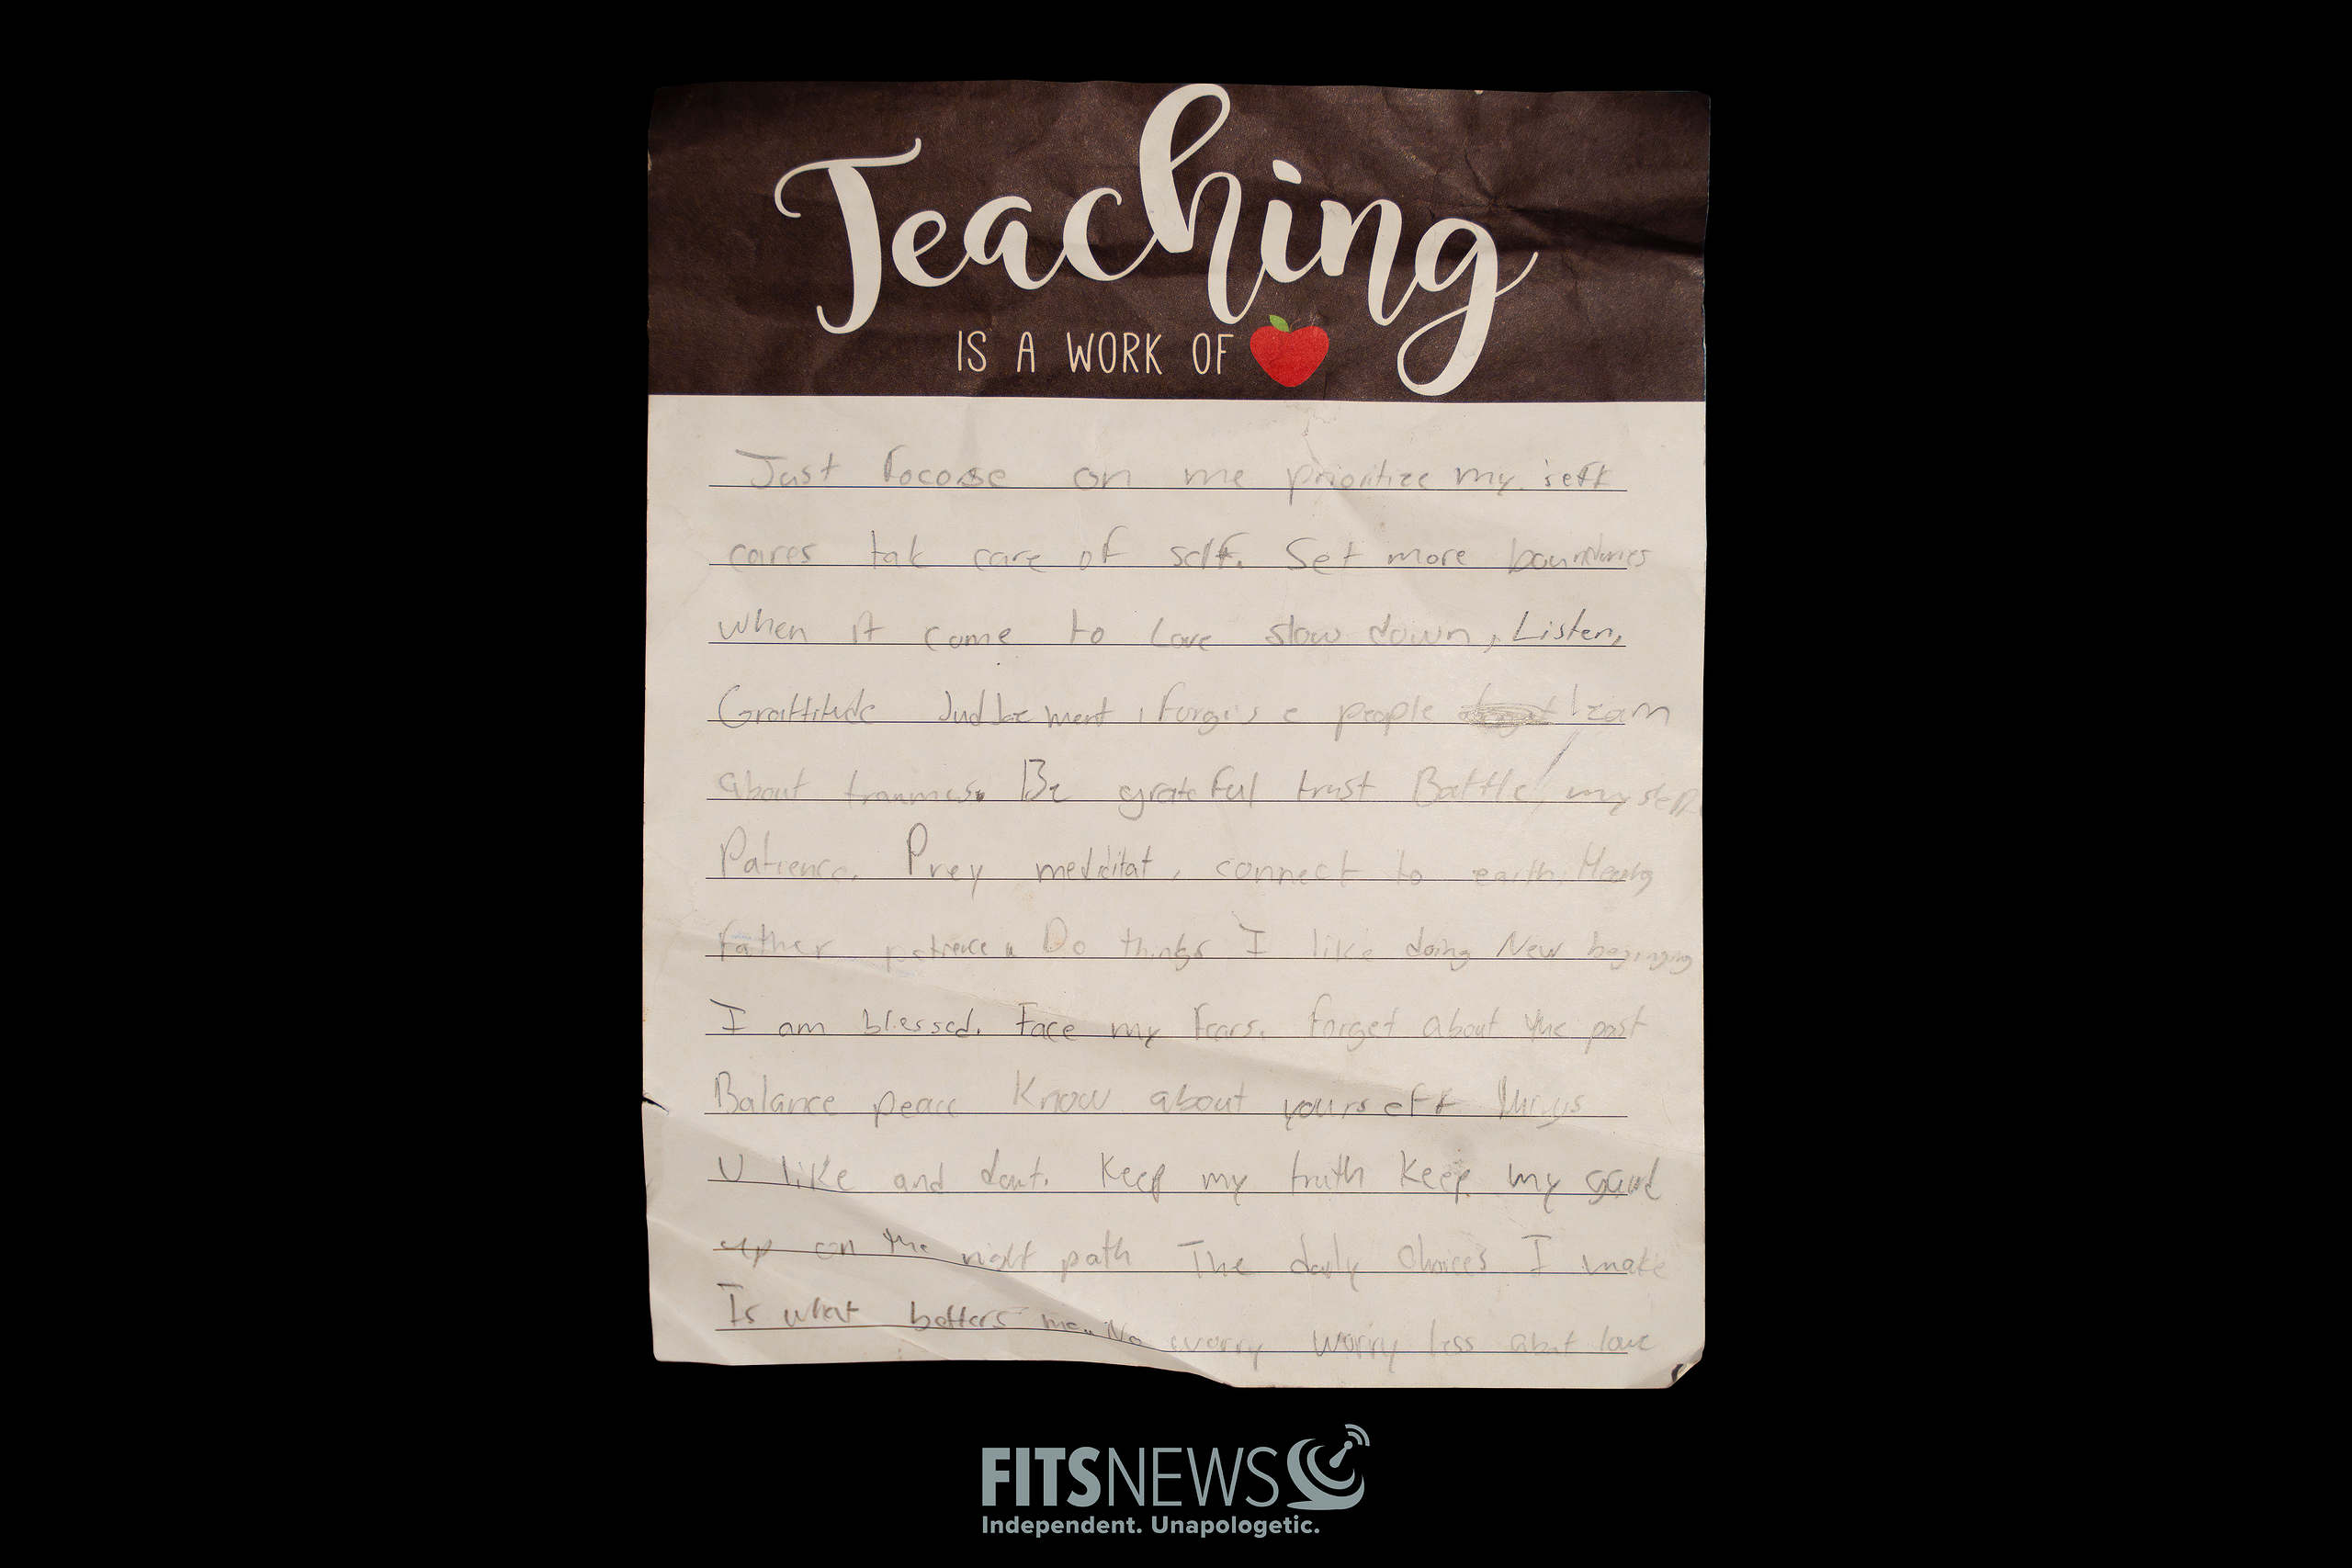 Teaching
IS A WORK OF
Just focose on me prioritize my self
cares tak care of self. Set more boundaries
when it come to love slow down, Listen,
Grattitude Judgement, forgive people learn
about traumas. Be grateful trust Battle, my self
Patience. Prey medditat, connect to earth,
father patience. Do things I like doing New
I am blessed. Face my fears. forget about the past
Balance peace Know about yourself things
U like and dont. Keep my truth Keep my gaurd
up on the right path The daily choices I make
Is what betters me. No worry worry less about love
FITSNEWS
Independent. Unapologetic.